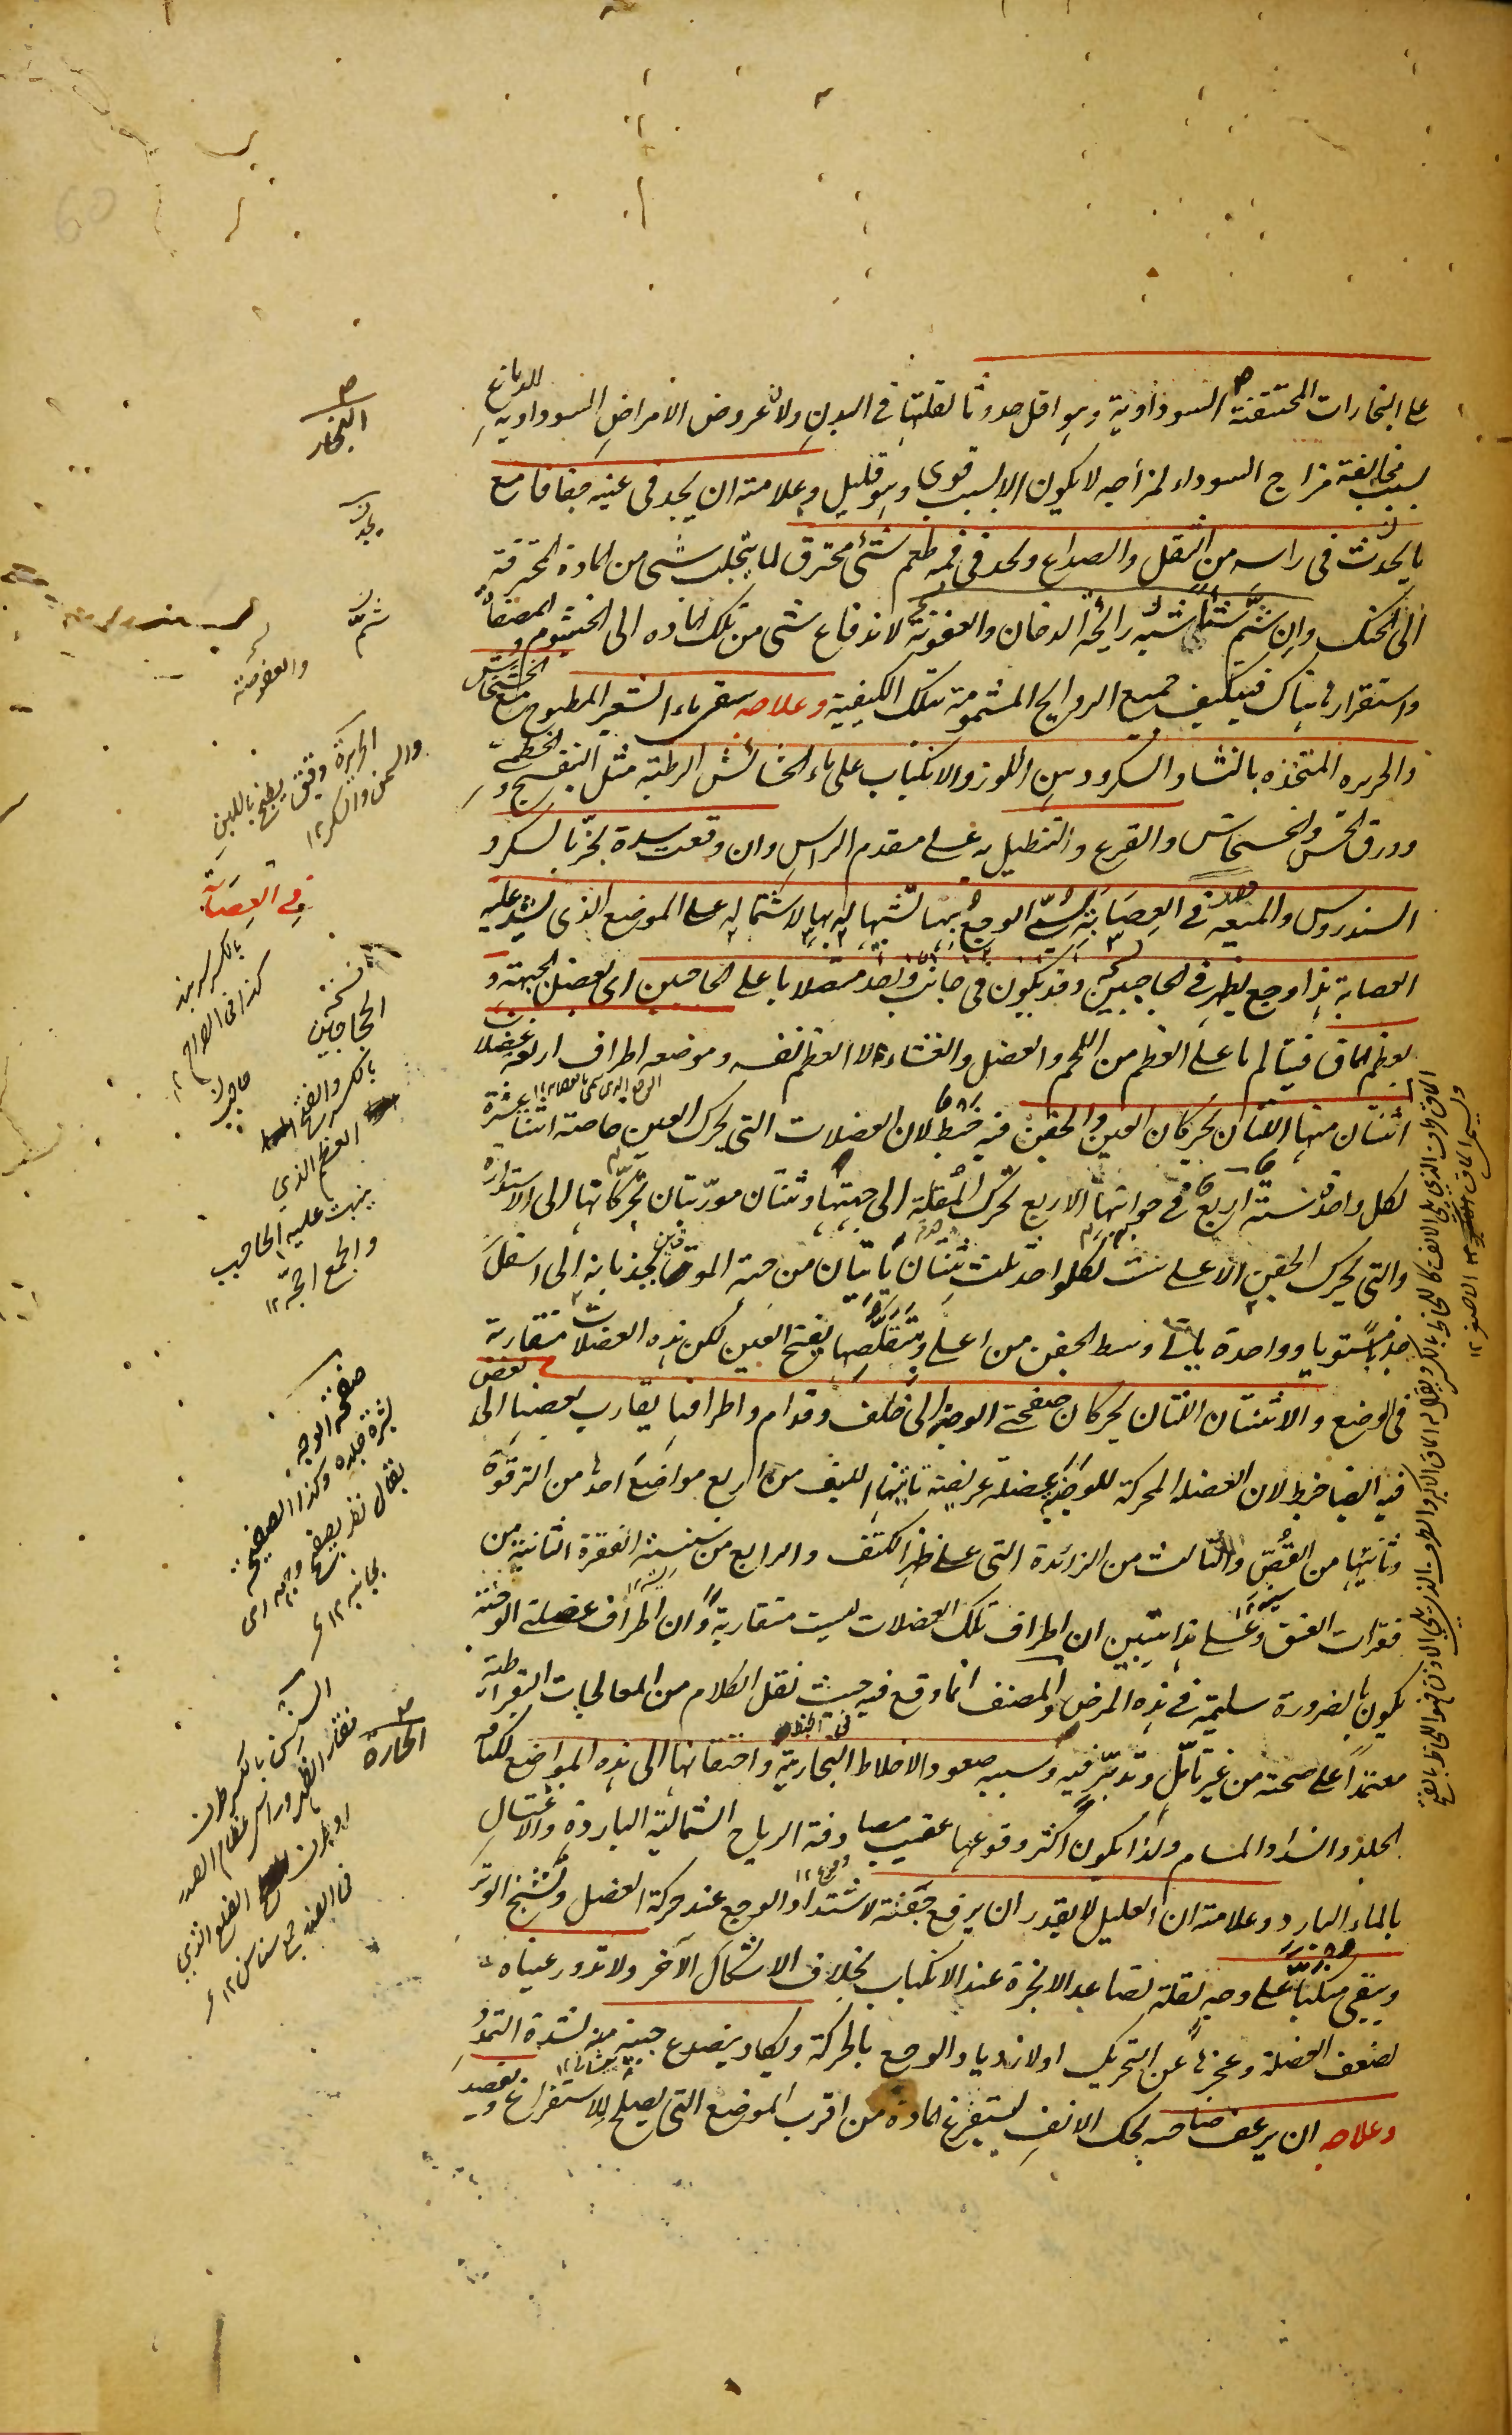 على البخارات المحتقنة السوداوية وهو اقل حدوثا لقلتها فى البدن ولان عروض الامراض السوداوية للدماغ
بسبب مخالفة مزاج السوداء لمزاجه لا يكون الا لسبب قوى وهو قليل وعلامته ان يجد فى عينيه جفافا مع
ما يحدث فى راسه من الثقل والصداع ويجد فى فمه طعم شئ محترق لما يتجلب شئ من المادة المحترقة
الى الحنك وان شم شيئا شبه رائحة الدخان والعفونة لاندفاع شئ من تلك المادة الى الخيشوم و المصفاة
واستقرارها هناك فيتكيف جميع الروايح المشمومة بتلك الكيفية وعلاجه سقى ماء الشعير المطبوخ مع الخشخاش
والحريره المتخذه بالنشا والسكر ودهن اللوز والانكباب على ماء الحشائش الرطبة مثل البنفسج و الخطمى
وورق الخس والخشخاش والقرع والتنطيل به على مقدم الراس وان وقعت سدة بخر بالسكر و
السندروس والميعه فصل فى العصابة سمى الوجع بها تشبيها له بها لاشتماله على الموضع الذى يشد عليه
العصابة هذا وجع يظهر فى الحاجبين وقد يكون فى جانب واحد متصلا باعلى الحاجبين اى بعضل الجبهة و
بعظم الماق فيتالم ما على العظم من اللحم والعضل والغشاء لا العظم نفسه وموضعه اطراف اربع عضلات
اثنتان منها اللتان يحركان العين والجفن فيه خبط لان العضلات التى يحرك العين خاصة اثنتا عشرة
لكل واحدة ستة اربع فى جوانبها الاربع تحرك المقلة الى جهتها وثنتان موربتان تحركانها الى الاستدارة
والتى يحرك الجفن الاعلى ثلث لكل واحد ثلث ثنتان ياتيان من جهة الموقين يجذبانه الى اسفل
جذبا مستويا وواحدة ياتى وسط الجفن من اعلى وبتقلصها يفتح العين لكن هذه العضلات متقاربة
فى الوضع والاثنتان اللتان يحركان صفحتى الوجه الى خلف وقدام واطرافها يقارب بعضها الى بعض
فيه ايضا خبط لان العضلة المحركة للوجنة عضلة عريضة ياتيها الليف من اربع مواضع احدها من الترقوة
وثانيها من القص والثالث من الزائدة التى على ظهر الكتف والرابع من سنسنة الفقرة الثانية من
فقرات العنق وعلى هذا يتبين ان اطراف تلك العضلات ليست متقاربة وان اطراف عضلة الوجنة
يكون بالضرورة سليمة فى هذه المرض والمصنف انما وقع فيه حيث نقل الكلام من المعالجات البقراطية
معتمدا على صحته من غير تامل وتدبر فيه وسببه صعود الاخلاط البخارية واختناقها الى هذه المواضع لكثافة
الجلد وانسداد المسام ولذا يكون اكثر وقوعها عقيب مصادفة الرياح الشمالية الباردة والاغتسال
بالماء البارد وعلامته ان العليل لا يقدر ان يرفع جفنه لاشتداد الوجع عند حركة العضل وتشنج الوتر
ويبقى منكبا على وجهه لقلة تصاعد الابخرة عند الانكباب بخلاف الاشكال الآخر ولا تدور عيناه
لضعف العضلة وعجزها عن التحريك او لازدياد الوجع بالحركة ويكاد ينصدع جبينه منه لشدة التمدد
وعلاجه ان يرعف صاحبه بحك الانف ليستفرغ المادة من اقرب الموضع التى يصلح للاستفراغ ويفصد
البخار
يجد
شم
والعفونة
الحريرة دقيق يطبخ باللبن
والسمن والسكر ١٢
فى العصابة
بالكسر سربند
كذا فى الصراح ١٢
نسخة
الحاجبين
حاجب
بالكسر والفتح
العظم الذى
ينبت عليه الحاجب
والجمع احجة ١٢
صفحه الوجه
بشرة جلده وكذا الصفيحة
يقال نظر بصفح وجهه اى
بجانبه ١٢
الحارة
السنسن بالكسر طرف
فقار الظهر وراس عظام الصدر
او طرف الضلع الذى
فى الصدر جمع سناسن ١٢